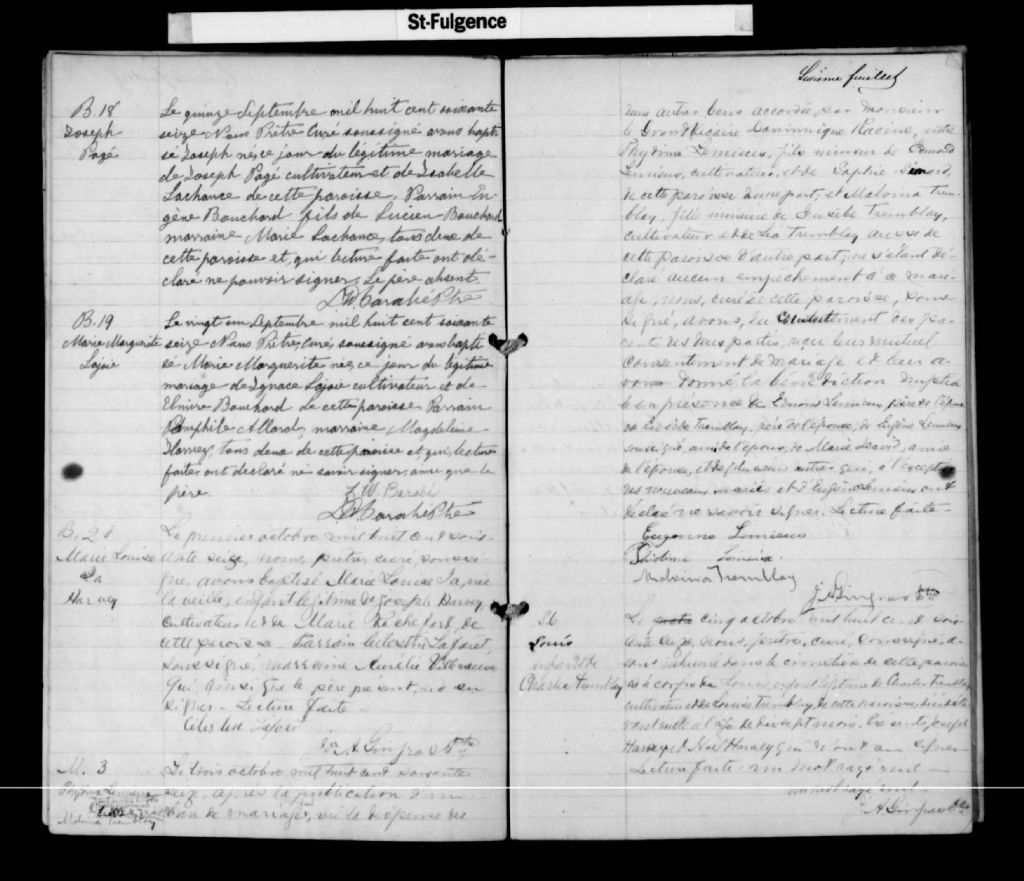 St-Fulgence
B. 18
Joseph
Pagé
Le quinze Septembre mil huit cent soixante
seize Nous Prêtre Curé soussigné avons bapti
sé Joseph né, ce jour du légitime mariage
de Joseph Pagé cultivateur et de Isabelle
Lachance de cette paroisse. Parrain Eu
gène Bouchard fils de Lucien Bouchard
marraine Marie Lachance, tous deux de
cette paroisse et, qui lecture faite ont dé-
claré ne pouvoir signer. Le père absent.
B. 19
Marie Marguerite
Lajoie
Le vingt un Septembre mil huit cent soixante
seize Nous Prêtre, Curé soussigné avons bapti
sé Marie Marguerite née, ce jour du légitime
mariage de Ignace Lajoie cultivateur et de
Elmire Bouchard de cette paroisse. Parrain
Pamphile Allard, marraine Magdeleine
Harvey, tous deux de cette paroisse et, qui, lecture
faite, ont déclaré ne savoir signer, ainsi que le
père.
B. 20
Marie Louise
Ia
Harvey
Le premier octobre mil huit cent soix-
ante seize, nous, prêtre, curé, soussi-
gné, avons baptisé Marie Louise Ia, née
la veille, enfant légitime de Joseph Harvey,
cultivateur et de Marie Rochefort, de
cette paroisse. Parrain Célestin Laforêt,
soussigné, marraine Aurélie Villeneuve
qui, ainsi que le père présent, n'a su
signer - Lecture faite -
J. A. Gingras Ptre
M. 3
Malvina Tremblay
Le trois octobre mil huit cent soixante
seize, après la publication d'un
ban de mariage, vu la dispense des
Sixième feuillet
deux autres bans accordée par Monsieur
le Grand Vicaire Dominique Racine, entre
Phydime Lemieux, fils mineur de Edmond
Lemieux, cultivateur, et de Sophie Simard,
de cette paroisse d'une part; et Malvina Trem-
blay, fille mineure de Eusèbe Tremblay,
cultivateur et de Léa Tremblay aussi de
cette paroisse d'autre part; ne s'étant dé-
claré aucun empêchement à ce mari-
age, nous, curé de cette paroisse, sous-
signé, avons, du consentement des pa-
rents des deux parties, reçu leur mutuel
consentement de mariage et leur a-
vons donné la bénédiction nuptia
le en présence de Edmond Lemieux, père de l'époux
de Eusèbe Tremblay, père de l'épouse, de Eugène Lemieux
soussigné, ami de l'époux, de Marie amie
de l'épouse, et de plusieurs autres qui, à l'exception
des nouveaux mariés et d'Eugène Lemieux ont
déclaré ne savoir signer. Lecture faite -
Lemieux
Malvina Tremblay
J. A. Gingras Ptre
S 6
Louis
enfant de
Charles Tremblay
Le cinq octobre mil huit cent soix-
ante seize, nous, prêtre, curé, soussigné, a-
vons inhumé dans le cimetière de cette parois-
se le corps de Louis, enfant légitime de Charles Tremblay
cultivateur et de Louise Tremblay, de cette paroisse, décédé
à l'âge de dix sept mois. Présents, Joseph
Harvey et Noël Harvey qui n'ont su signer
Lecture faite - un mot rayé nul -
J. A. Gingras Ptre